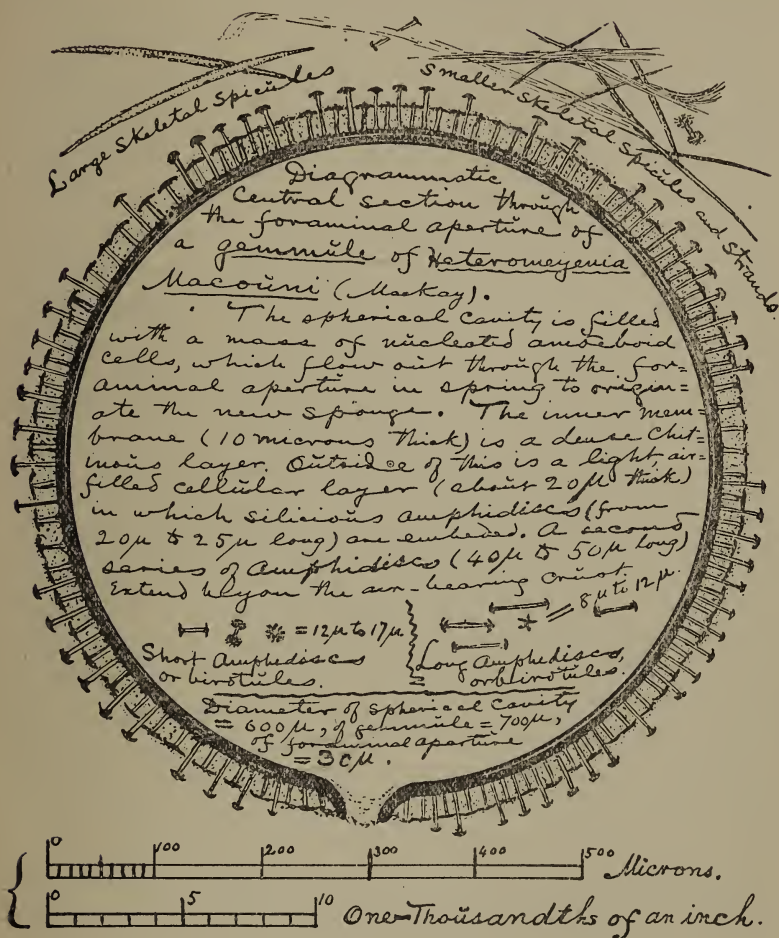 Large Skeletal Spicules
Smaller Skeletal Spicules and Strands.
Diagrammatic
Central section through
the foraminal aperture of
a gemmule of Heteromeyenia
Macouni (MacKay).
The spherical cavity is filled
with a mass of nucleated amoeboid
cells, which flow out through the for=
aminal aperture in spring to origin=
ate the new sponge. The inner mem=
brane (10 microns thick) is a dense chit=
inous layer. Outside of this is a light, air=
filled cellular layer (about 20µ thick)
in which silicious amphidiscs (from
20µ to 25µ long) are embeded. A second
series of Amphidiscs (40µ to 50µ long)
Extend beyon the air-bearing crust
= 12µ to 17µ
= 8µ to 12µ.
Short Amphediscs
or birotules.
Long Amphediscs,
or birotules.
Diameter of Spherical Cavity
= 600µ, of gemmule = 700µ,
of foraminal aperture
= 30µ.
0 100 200 300 400 500 Microns.
0 5 10 One-Thousandths of an inch.